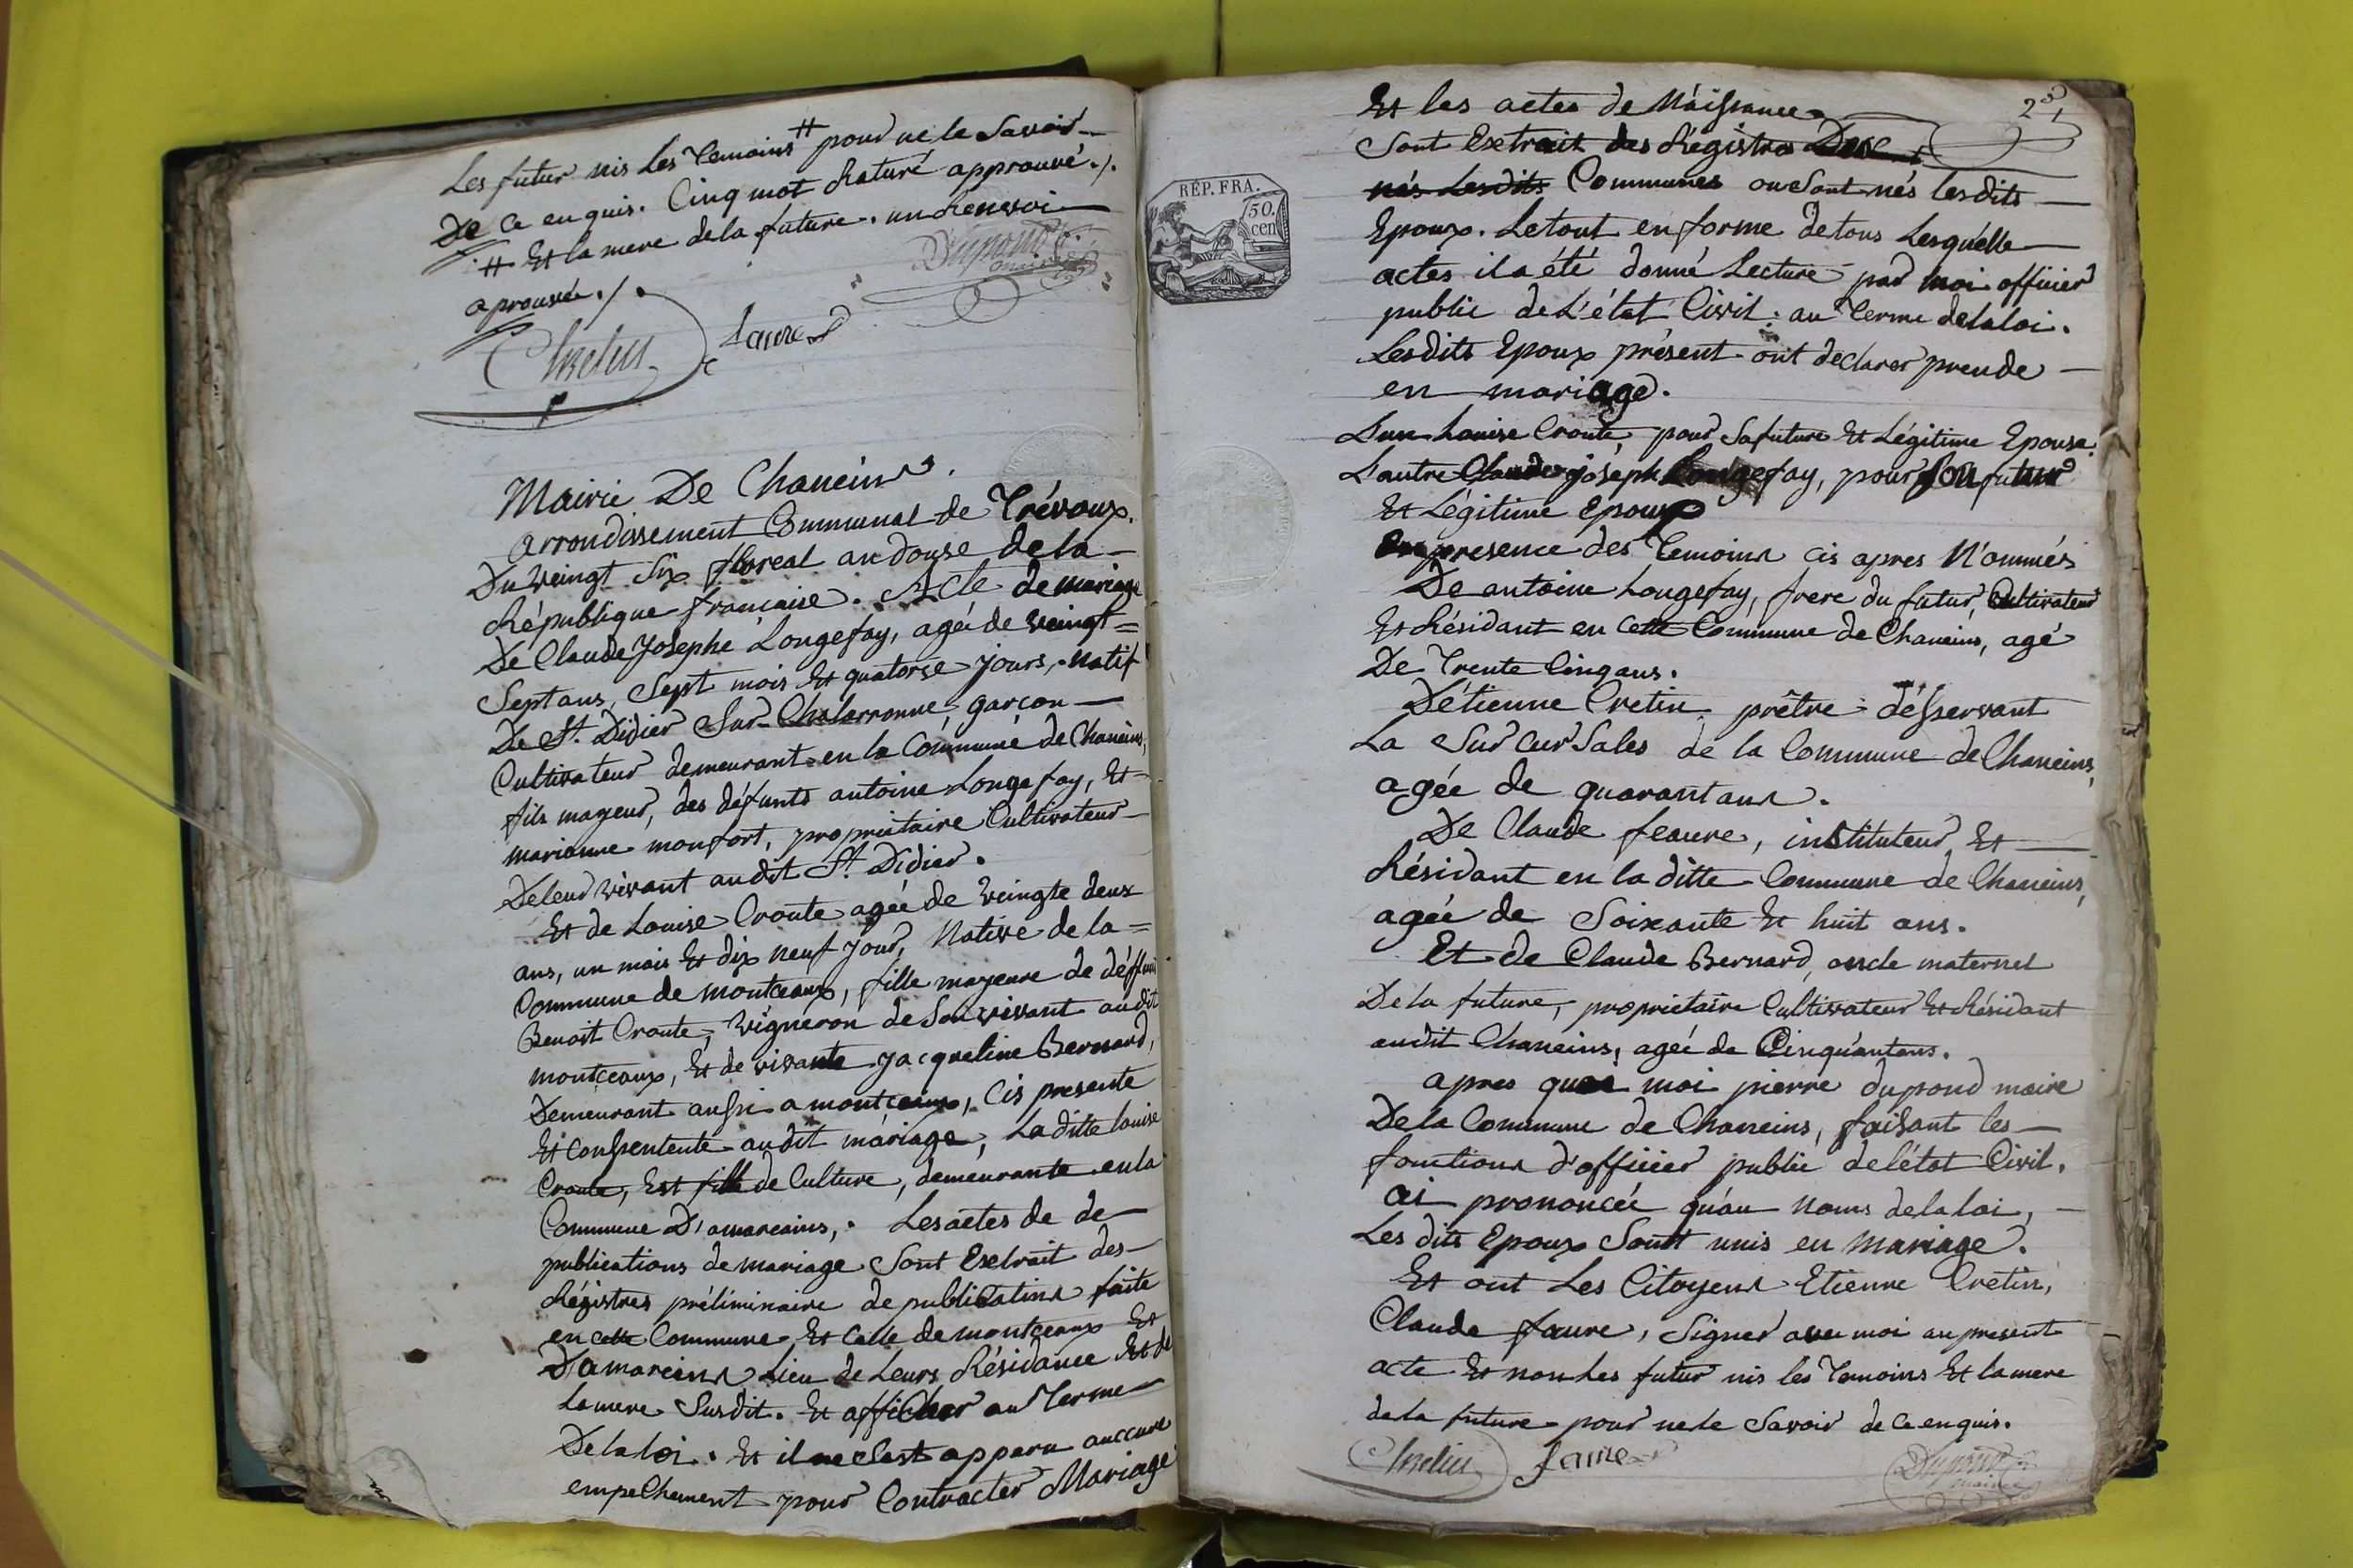 Les futur nis Les Temoins # pour ne le Savoir
De Ce enquis. Cinq mot Raturé approuvé ./.
# Et la mere dela future. un Renvoi
aprouvée ./.
Dupond
maire
Cretin
faure
Mairie De Chaneins.
arrondissement Communal de Trévoux.
Du Veingt Six floreal an douse de la
République française. Acte de mariage
De Claude Josephe Longefay, agée de veingt =
Sept ans, Sept mois Et quatorse jours, natif
De St. Didier Sur Chalarronne, garçon
Cultivateur demeurant en la Commune de Chaneins,
fils mayeur, des défunts antoine Longefay, Et
marianne monfort, propriétaire Cultivateur
De leur vivant audit St. Didier.
Et de Louise Croute agée de veingte deux
ans, un mois Et dix neuf jour, Native de la =
Commune de montceaux, fille mayeure de déffunt
Benoit Croute, vigneron de Son vivant audit
montceaux, Et de vivante jacqueline Bernard,
Demeurant aussi a montceaux, Cis presente
Et Consentente audit mariage, La ditte louise
Croute, Est fille de Culture, demeurante en la
Commune D'amareins,. Les actes de de
publications de mariage Sont Extrait des
Régistres préliminaire de publications faite
en cette Commune Et Celle de montceaux Et
D'amareins Lieu de Leurs Résidance Et de
la mere Susdit. Et afficher au Terme
De la loi. Et il ne C'est apparu auccune
empechement pour Contracter Mariage
231
REP. FRA.
50.
cen
Et les actes de Naissance
Sont Extrait des Régistres Des
nés Lesdits Communes ou Sont nés lesdits
Epoux. Le tout en forme de tous Lesquelle
actes il a été donné Lecture par moi officier
public de L'état Civil. au Terme de la loi.
Lesdits Epoux présent ont declarer prende
en mariage.
L'un Louise Croute, pour Sa future Et Légitime Epouse.
L'autre Claude joseph Longefay, pour Son futur
Et Légitime Epoux
En presence des Temoins cis apres Nommés
De antoine Longefay, frere du futur, Cultivateur
Et Résidant en cette Commune de Chaneins, agé
De Trente Cinq ans.
D'étienne Cretin prêtre désservant
La Sur cur Sales de la Commune de Chaneins,
agée de quarant ans.
De Claude feaure, instituteur Et
Résidant en la ditte Commune de Chaneins,
agée de Soixante Et huit ans.
Et de Claude Bernard, oncle maternel
De la future, propriétaire Cultivateur Et Résidant
audit Chaneins, agée de Cinquantans.
apres quoi moi pierre dupond maire
De la Commune de Chaneins, faisant les
fonctions d'officier public de l'état Civil.
ai prononcée qu'au noms de la loi,
Les dits Epoux Sont unis en mariage.
Et ont Les Citoyens Etienne Cretin,
Claude faure, Signer avec moi au present
acte Et non Les futur nis les Temoins Et la mere
de la future pour ne le Savoir de ce enquis.
Cretin
faure
Dupond
maire